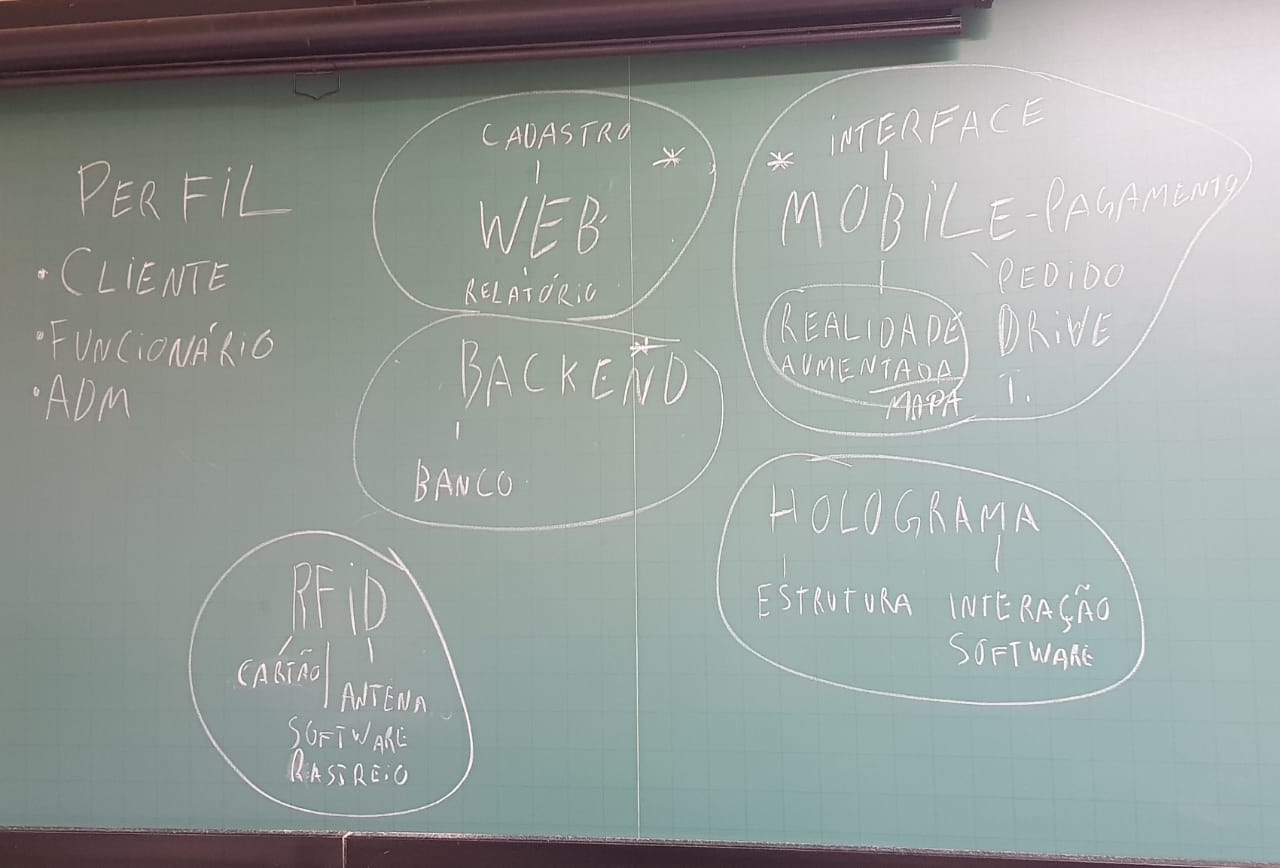 PERFIL
• CLIENTE
• FUNCIONÁRIO
• ADM
CADASTRO
*
WEB
RELATÓRIO
* INTERFACE
MOBILE - PAGAMENTO
PEDIDO
REALIDADE
AUMENTADA
MAPA
DRIVE
T.
*
BACKEND
BANCO
HOLOGRAMA
ESTRUTURA
INTERAÇÃO
SOFTWARE
RFID
CARTÃO
ANTENA
SOFTWARE
RASTREIO